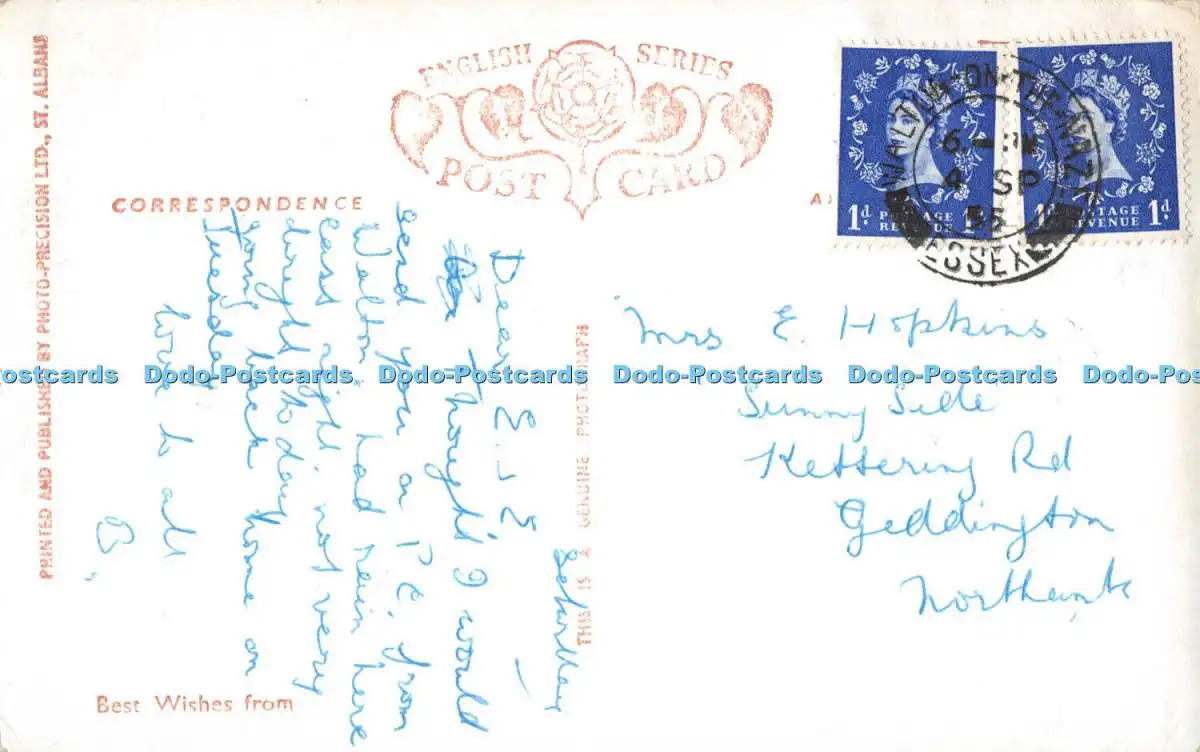 ENGLISH SERIES
POST CARD
CORRESPONDENCE
PRINTED AND PUBLISHED BY PHOTO-PRECISION LTD., ST. ALBANS
THIS IS A GENUINE PHOTOGRAPH
WALTON-ON-THE-NAZE
6 - PM
4 SP
55
ESSEX
1d POSTAGE REVENUE 1d
1d POSTAGE REVENUE 1d
Saturday
Dear E. & E
Thought I would
send you a P.C. from
Walton. had rain here
last night. not very
bright to day
going back home on
Tuesday
love to all
B.
Best Wishes from
Mrs E. Hopkins
Sunny Side
Kettering Rd
Geddington
Northants
Dodo-Postcards Dodo-Postcards Dodo-Postcards Dodo-Postcards Dodo-Postcards